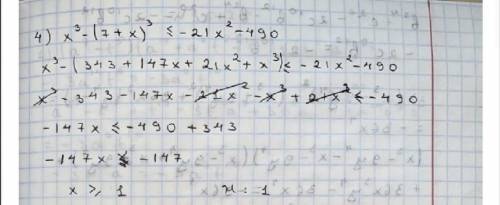 4) x³-(7+x)³ ≤ -21x²-490
x³-(343+147x+21x²+x³) ≤ -21x²-490
x³-343-147x-21x²-x³+21x² ≤ -490
-147x ≤ -490+343
-147x ≤ -147
x ≥ 1